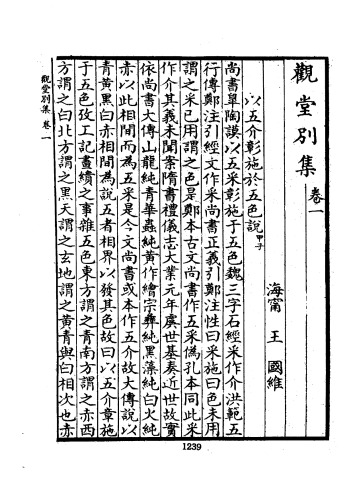 觀堂別集 卷一
海甯 王 國維
以五介彰施於五色說 甲子
尚書皐陶謨以五采彰施于五色魏三字石經采作介洪範五
行傳鄭注引經文作采尚書正義引鄭注性曰采施曰色未用
謂之采已用謂之色是鄭本古文尚書作五采僞孔本同此采
作介其義未聞案隋書禮儀志大業元年虞世基奏近世故實
依尚書大傳山龍純青華蟲純黃作繪宗彝純黑藻純白火純
赤以此相間而為五采是今文尚書或本作五介故大傳說以
青黃黑白赤相間為說五者相界以發其色故曰以五介章施
于五色攷工記畫繢之事雜五色東方謂之青南方謂之赤西
方謂之白北方謂之黑天謂之玄地謂之黃青與白相次也赤
觀堂別集 卷一
1239